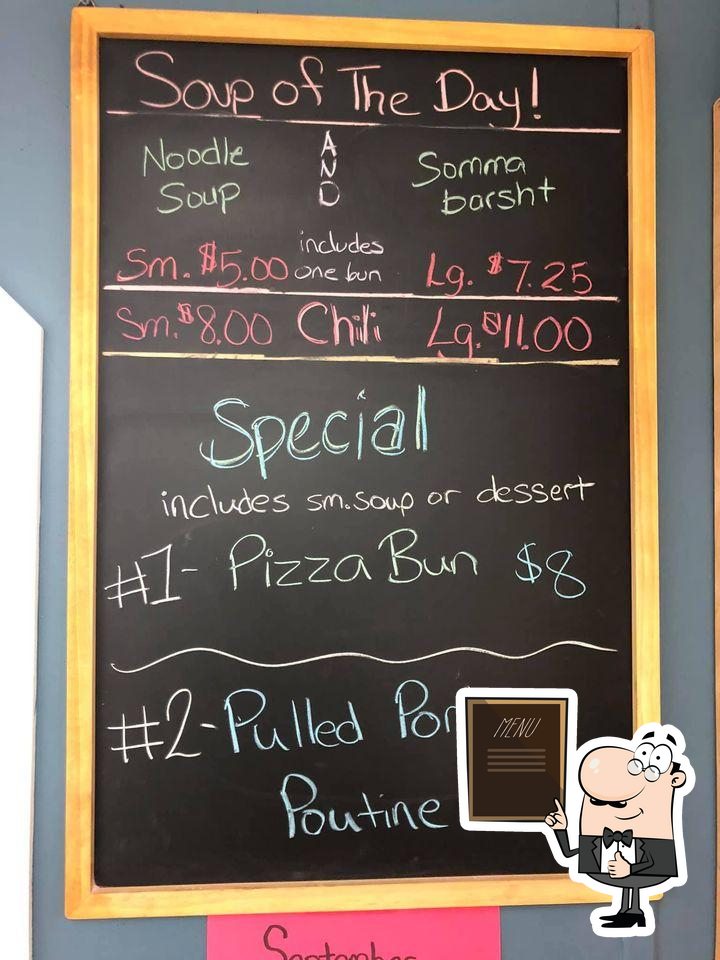 Soup of The Day!
Noodle Soup
AND
Somma barsht
Sm. $5.00 includes one bun Lg. $7.25
Sm. $8.00 Chili Lg. $11.00
Special
includes sm. soup or dessert
#1- Pizza Bun $8
#2- Pulled
Poutine
MENU